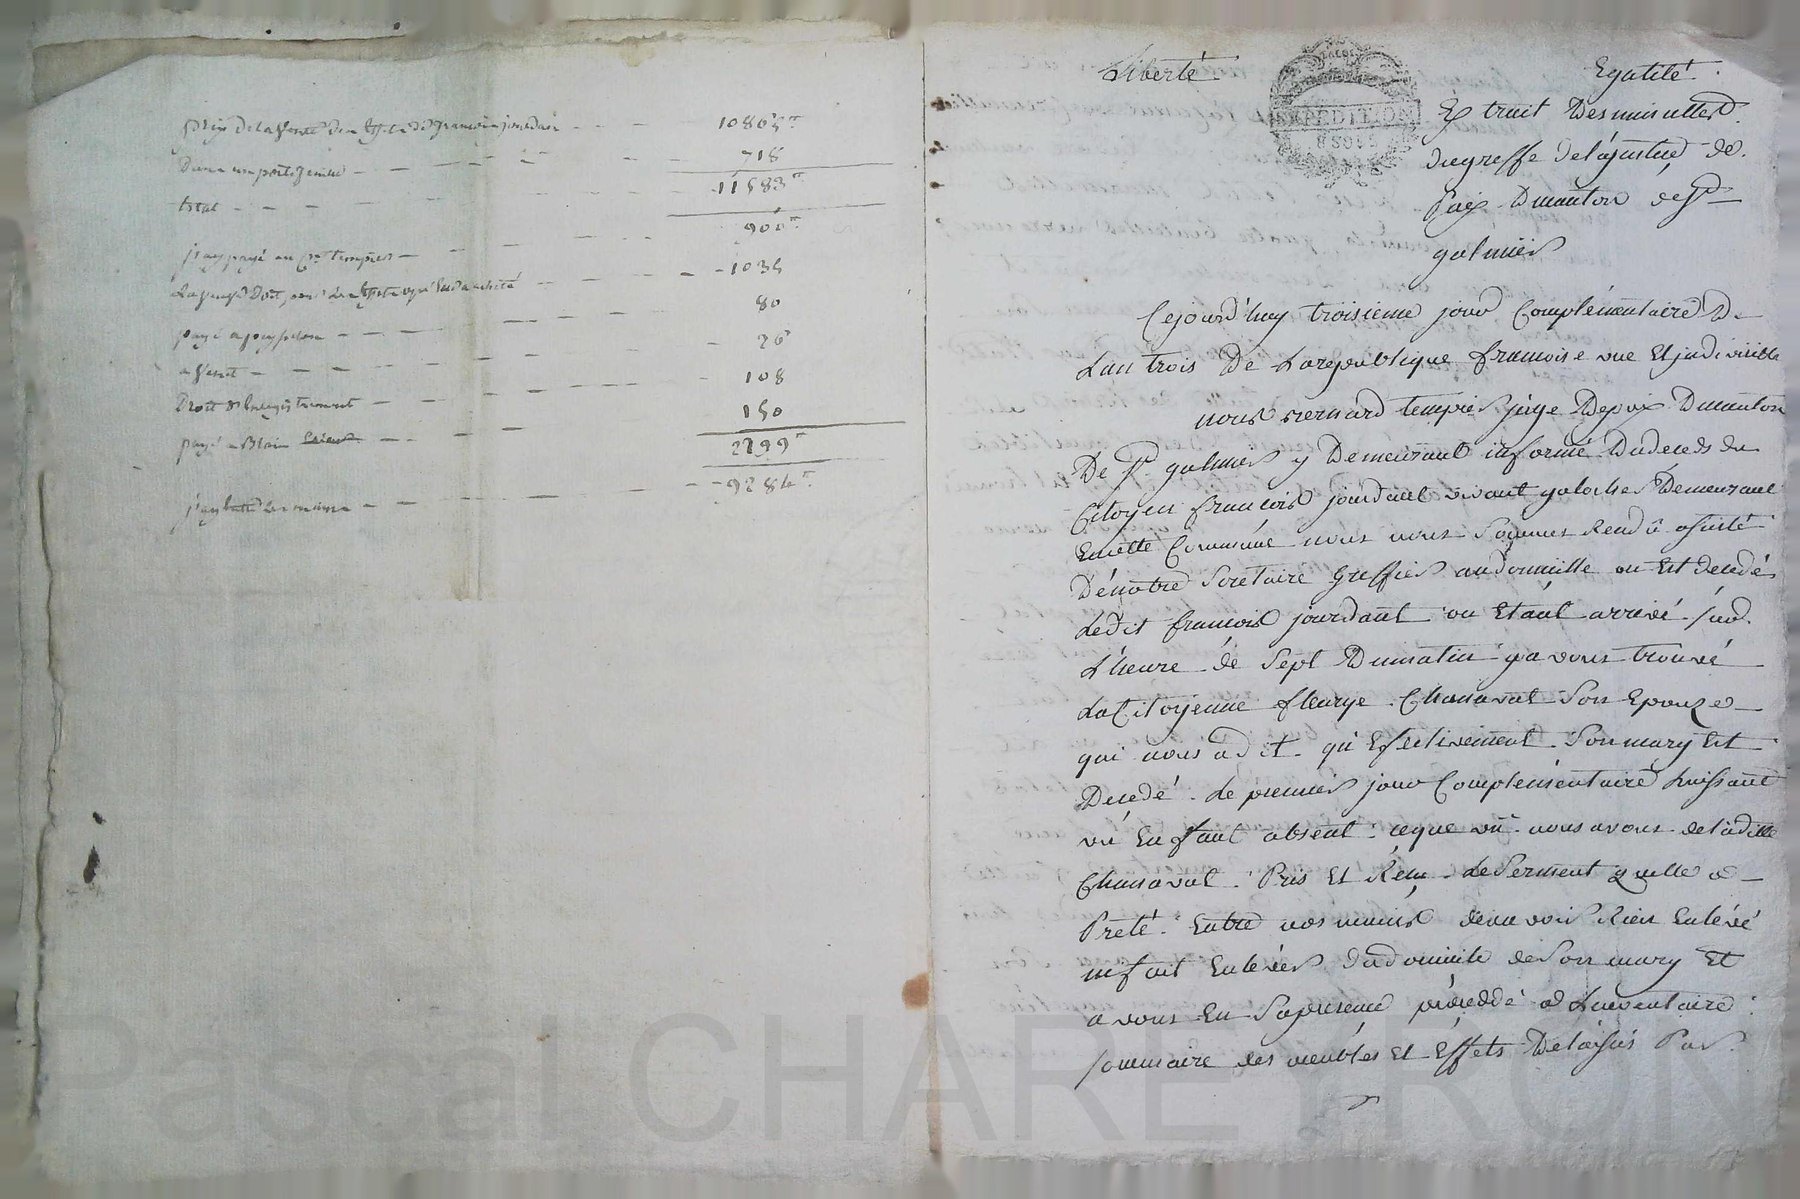 prix de la vente des effets de françois jourdan - - - 10865tt
Dune - - - 718
total - - - 11583tt
900tt
j'ay payé au Cen tempier -
- 1035
80
payé a
26
a - - -
108
Droit d'Enregistrement - - -
150
payé a Blain
2299tt
9284tt
Liberté Egalité
EXPEDITION
Extrait Des minuttes
du greffe de la justice de
Paix Du canton de St
galmier
Cejourd'huy troisieme jour Complémentaire De
Lan trois De La republique francoise une Et indivisible
nous Bernard tempier juge De paix Du canton
De St galmier y Demeurant informé Du deces du
Citoyen francois jourdant vivant galocher Demeurant
En cette Commune nous nous Sommes Rendu assisté
De notre Secretaire Greffier au Domicille ou Est decedé
Ledit francois jourdant ou Etant arrivé sur
L'heure de Sept Du matin y avons trouvé
La Citoyenne fleurye Chanavat Son Epouze
qui nous a dit qu'Effectivement Son mary Est
Decedé Le premier jour Complémentaire Laissant
un Enfant absent ce que vu nous avons de la ditte
Chanavat Pris Et Recu Le Serment quelle a
Preté Entre nos mains de n'avoir Rien Enlevé
ni fait Enlever du domicile de Son mary Et
avons En Sa presence procedé a L'inventaire
sommaire des meubles Et Effets Delaissés Par
ascal CHAREYRON